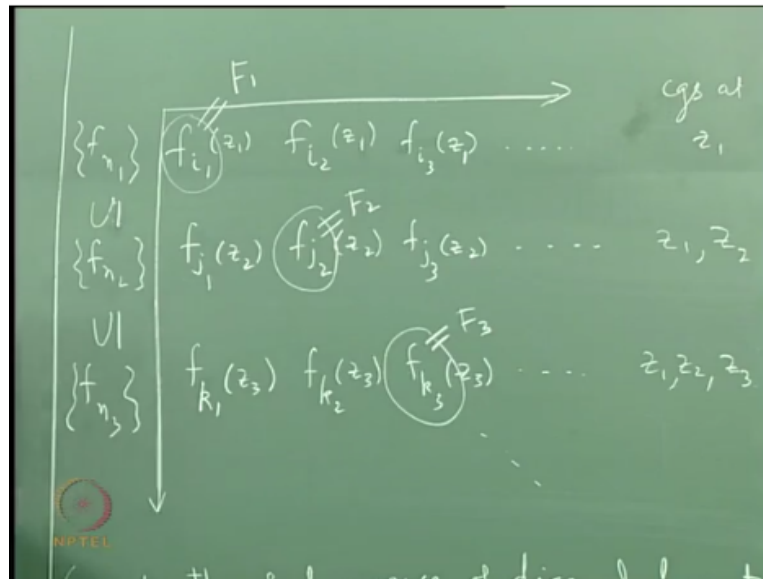 F₁
cgs at
{f_{n₁}} f_{i₁}(z₁) f_{i₂}(z₁) f_{i₃}(z₁) ..... z₁
UI
F₂
{f_{n₂}} f_{j₁}(z₂) f_{j₂}(z₂) f_{j₃}(z₂) ..... z₁, z₂
UI
F₃
{f_{n₃}} f_{k₁}(z₃) f_{k₂}(z₃) f_{k₃}(z₃) ..... z₁, z₂, z₃
NPTEL